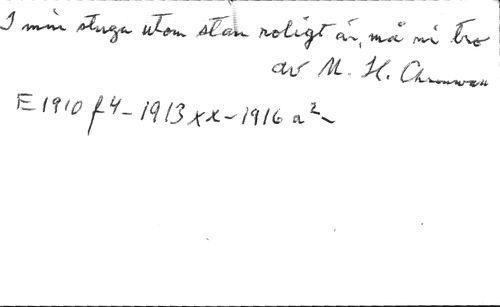 I min stuga utom stan roligt är, må ni tro
av M. H.
E 1910 f4 - 1913 xx - 1916 a2 -